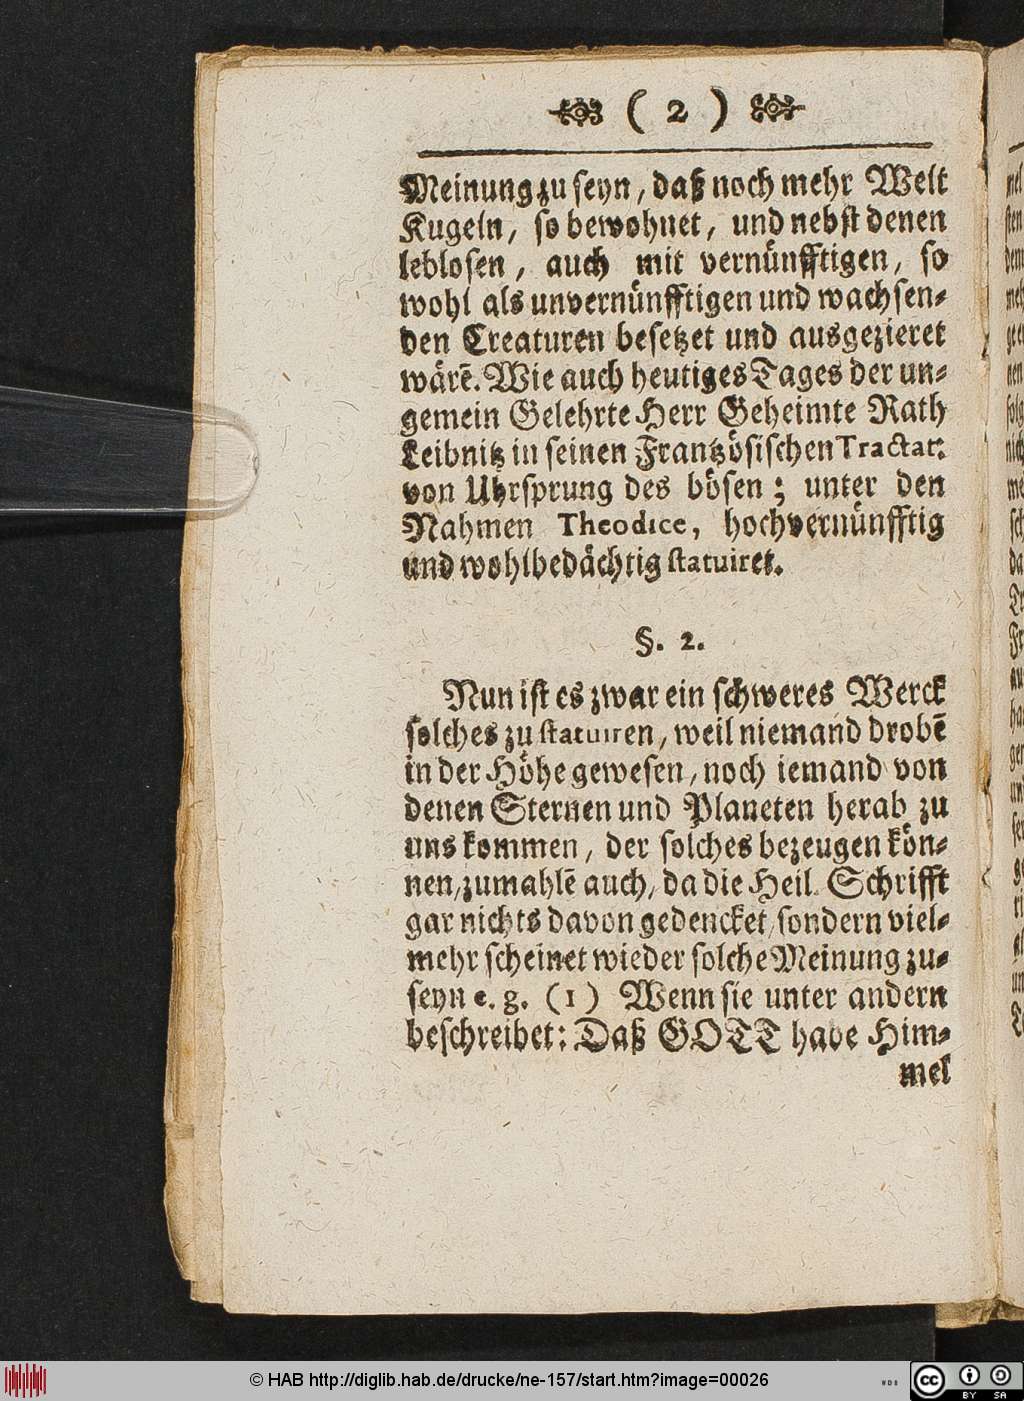 ( 2 )
Meinung zu seyn, daß noch mehr Welt
Kugeln, so bewohnet, und nebst denen
leblosen, auch mit vernünfftigen, so
wohl als unvernünfftigen und wachsen-
den Creaturen besetzet und ausgezieret
wärē. Wie auch heutiges Tages der un-
gemein Gelehrte Herr Geheimte Rath
Leibnitz in seinen Frantzösischen Tractat:
von Uhrsprung des bösen; unter den
Nahmen Theodice, hochvernünfftig
und wohlbedächtig statuiret.
§. 2.
Nun ist es zwar ein schweres Werck
solches zu statuiren, weil niemand drobē
in der Höhe gewesen, noch iemand von
denen Sternen und Planeten herab zu
uns kommen, der solches bezeugen kön-
nen, zumahlē auch, da die Heil. Schrifft
gar nichts davon gedencket, sondern viel-
mehr scheinet wieder solche Meinung zu-
seyn e. g. (1) Wenn sie unter andern
beschreibet: Daß GOTT habe Him-
mel
© HAB http://diglib.hab.de/drucke/ne-157/start.htm?image=00026
cc BY SA